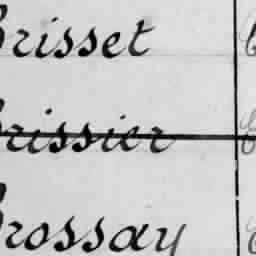 Brisset
Brissier
Brossay